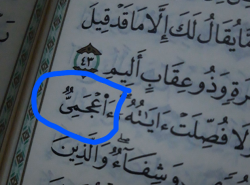 مَّا يُقَالُ لَكَ إِلَّا مَا قَدْ قِيلَ
ةٍ وَذُو عِقَابٍ أَلِيمٍ ٤٣
لَا فُصِّلَتْ ءَايَٰتُهُۥٓ ءَا۬عْجَمِىٌّ
وَشِفَآءٌ وَٱلَّذِينَ